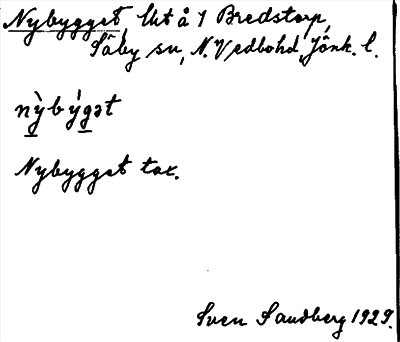 Nybygget, lht å 1 Bredstorp,
Säby sn, N. Vedbo hd, Jönk. l.
nỳbýgət
Nybygget tax.
Sven Sandberg 1929.